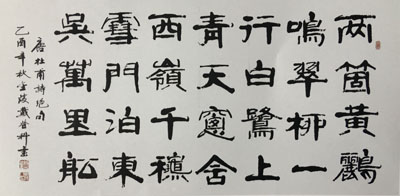 两箇黃鸝
鳴翠柳一
行白鷺上
青天窻含
西嶺千穐
雪門泊東
吳萬里舩
唐杜甫詩絕句
乙酉年秋金陵戴